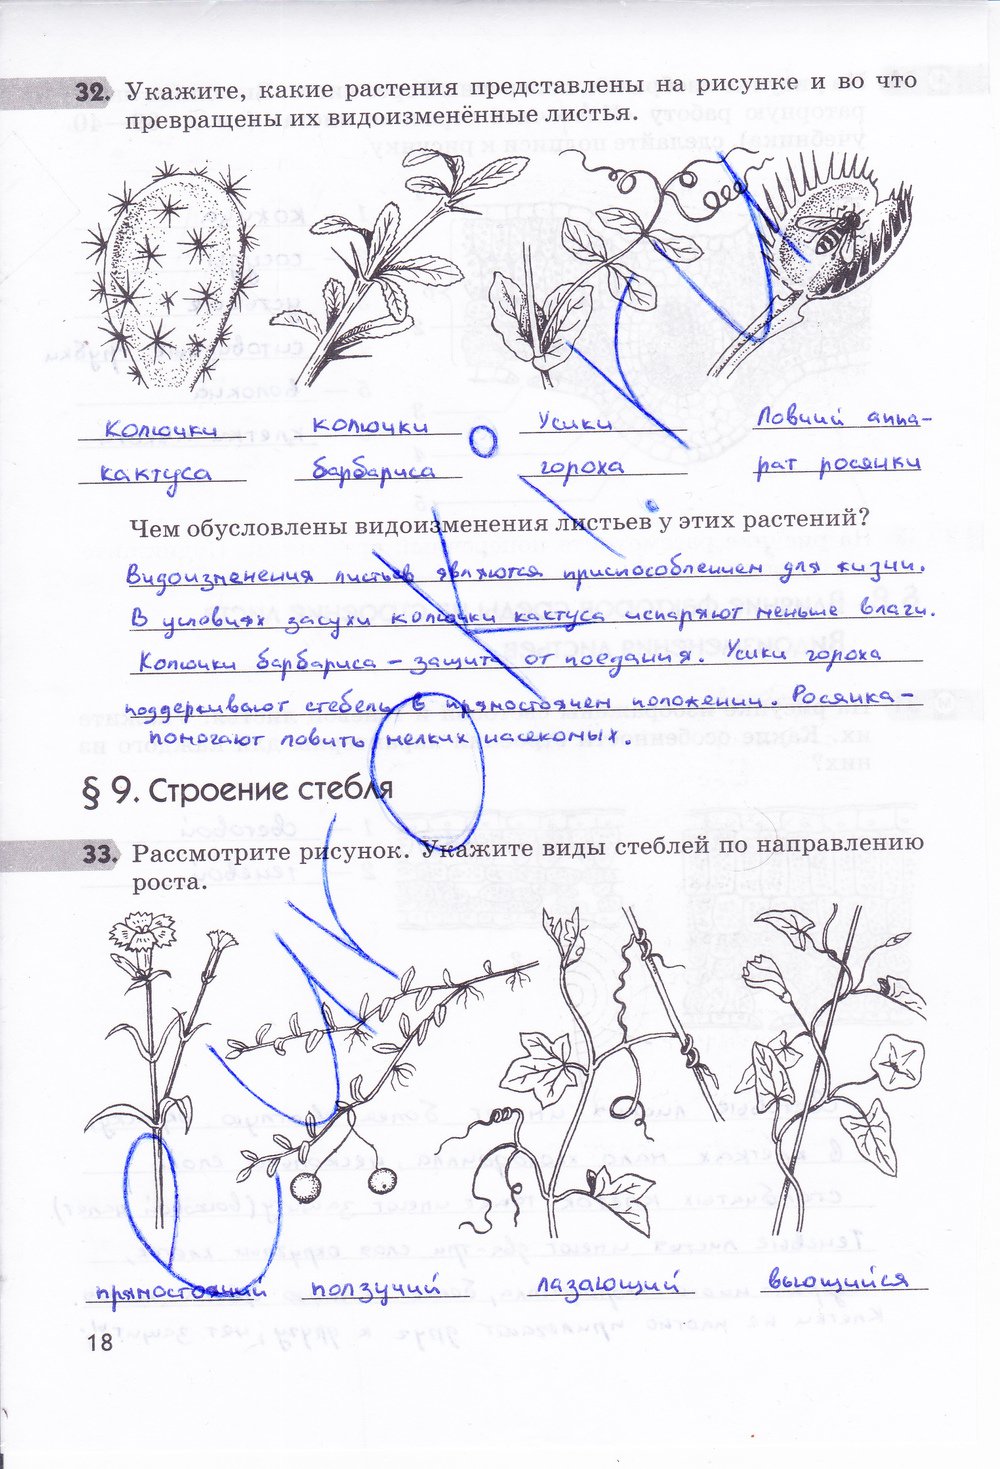 32. Укажите, какие растения представлены на рисунке и во что
превращены их видоизменённые листья.
Колючки колючки Усики Ловчий аппа-
кактуса барбариса гороха рат росянки
Чем обусловлены видоизменения листьев у этих растений?
Видоизменения листьев являются приспособлением для жизни.
В условиях засухи колючки кактуса испаряют меньше влаги.
Колючки барбариса – защита от поедания. Усики гороха
поддерживают стебель в прямостоячем положении. Росянка –
помогают ловить мелких насекомых.
§ 9. Строение стебля
33. Рассмотрите рисунок. Укажите виды стеблей по направлению
роста.
прямостоячий ползучий лазающий вьющийся
18